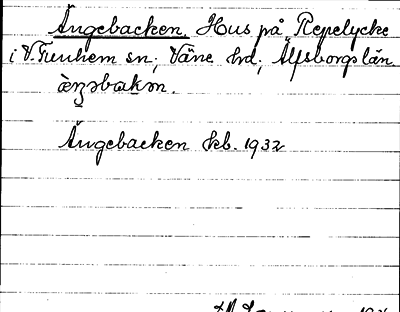 Ängebacken. Hus på Repelycke
i V. Tunhem sn; Väne hd; Älfsborgs län
Ängebacken kb. 1932